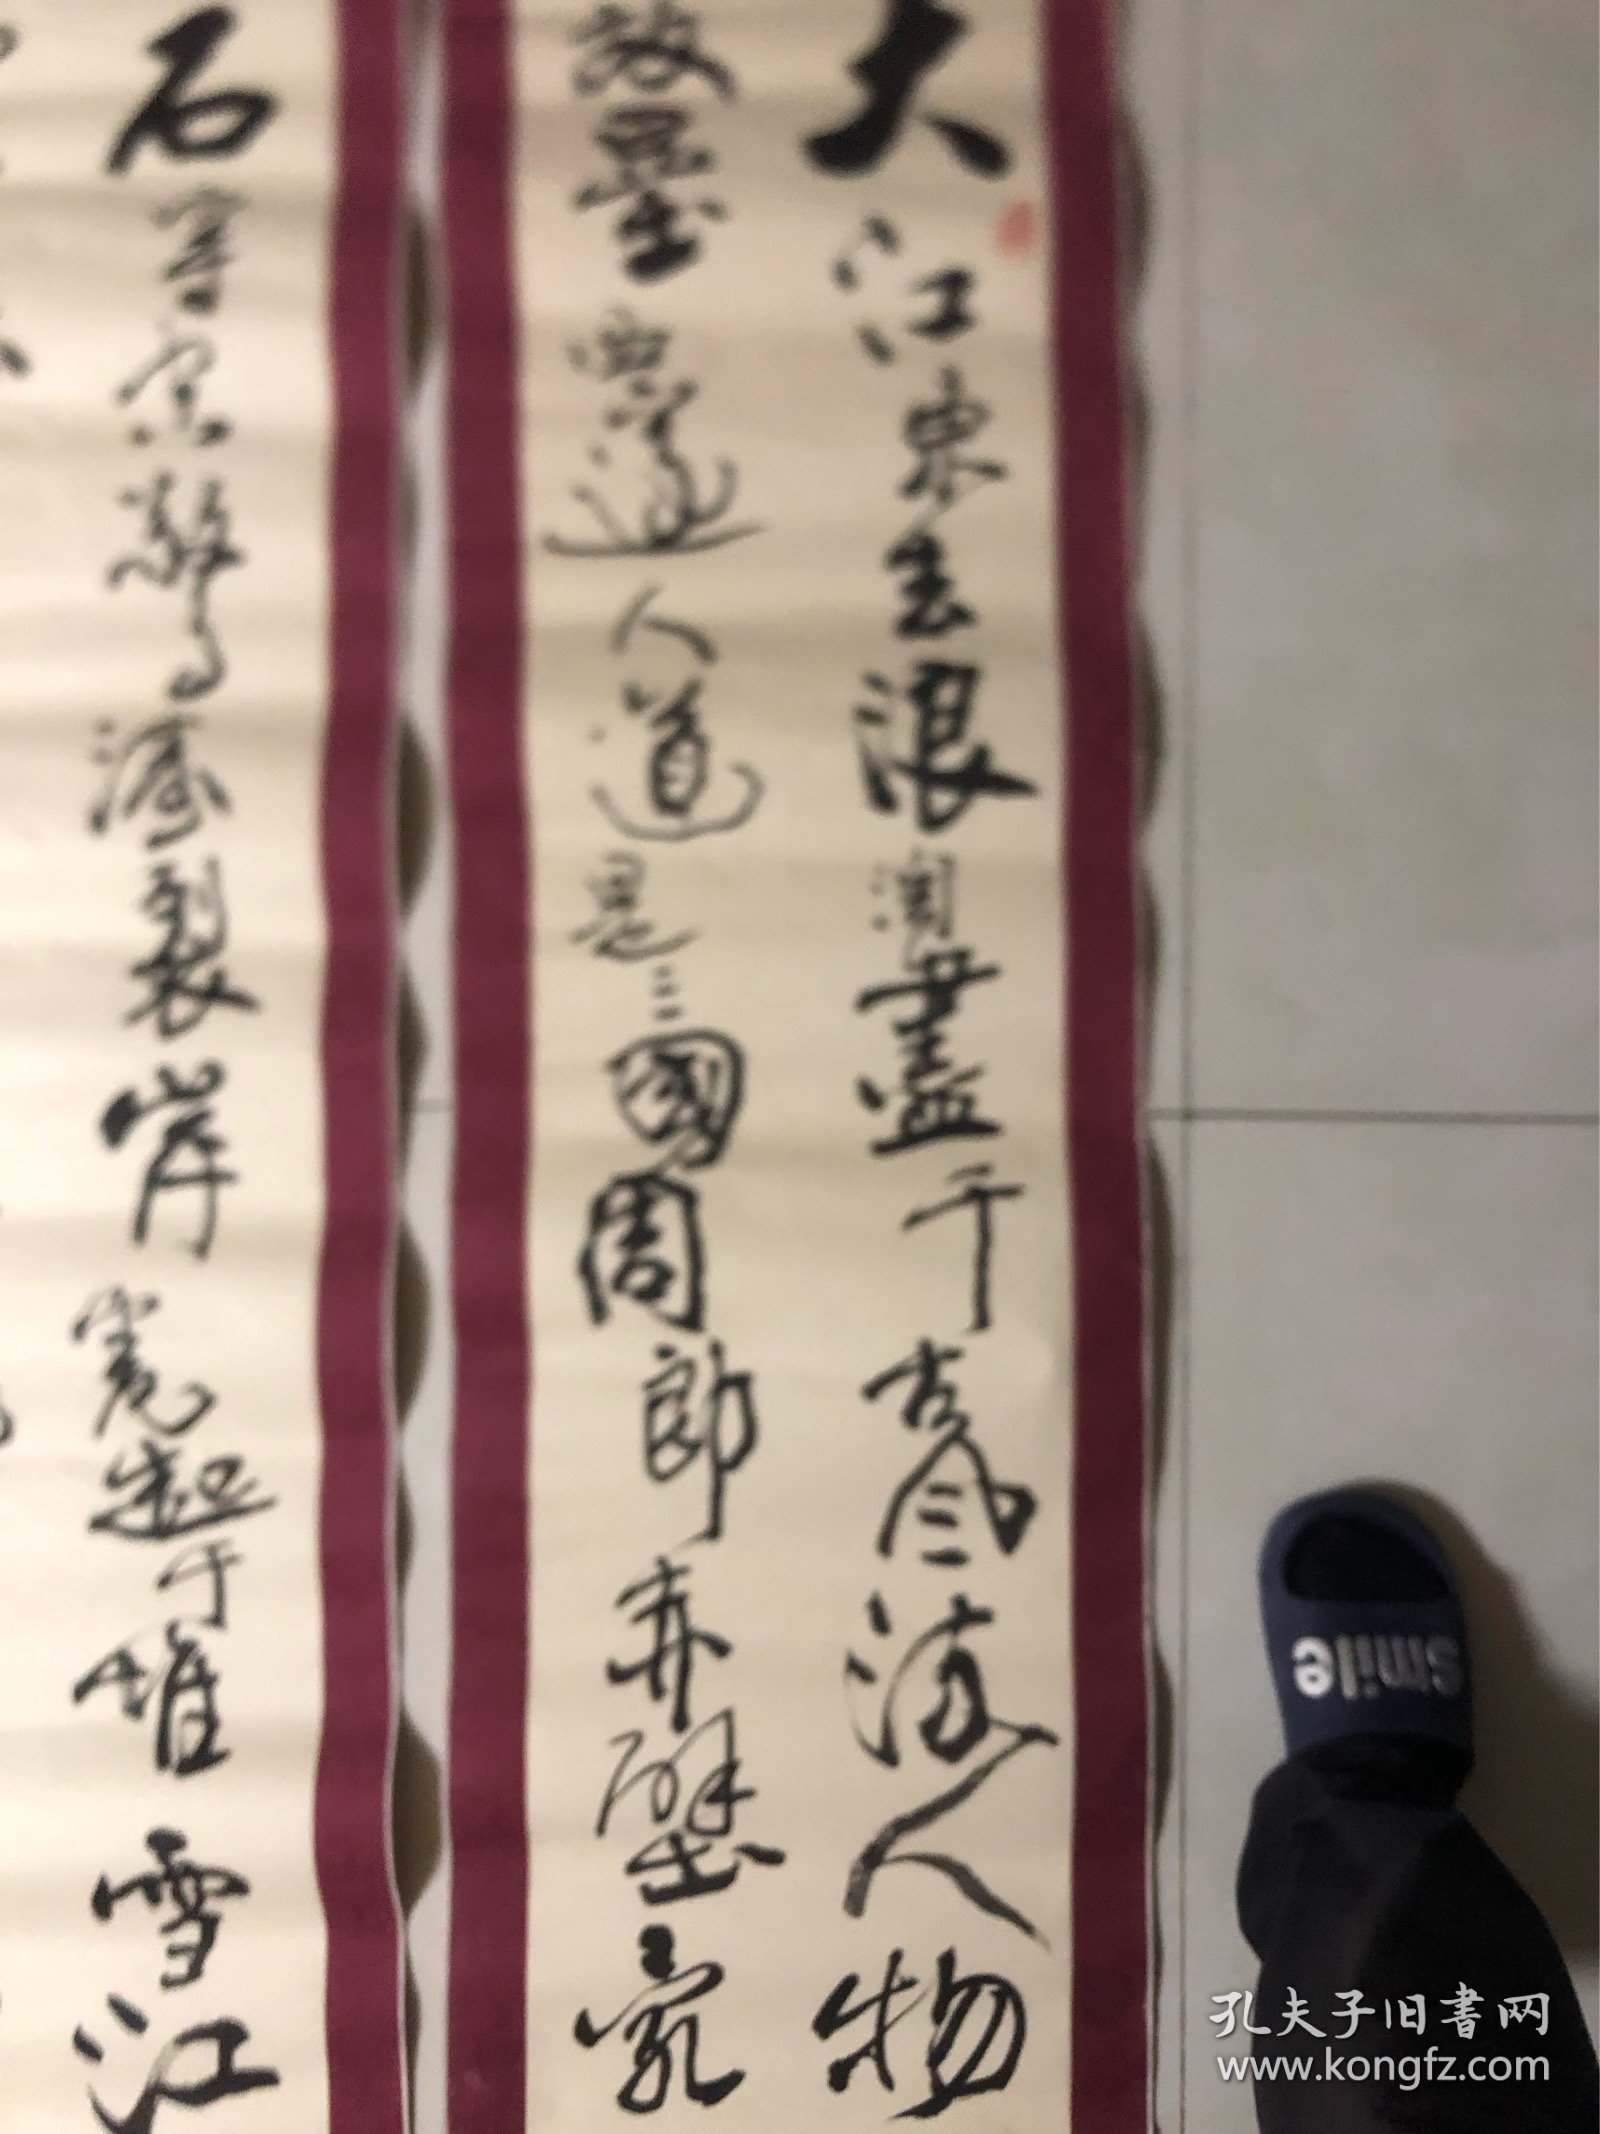 大江東去浪淘盡千古風流人物
故壘西邊人道是三國周郎赤壁亂
石穿空驚濤裂岸卷起千堆雪江
smile
孔夫子旧书网
www.kongfz.com